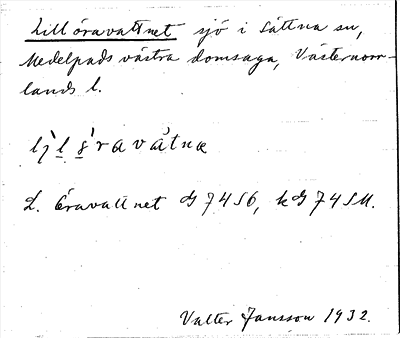 Lill öravattnet sjö i Sättna sn,
Medelpads västra domsaga, Västernorr-
lands l.
L. Öravattnet G 7456, kG 74 SM.
Valter Jansson 1932.